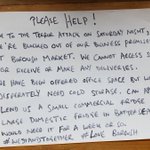 PLEASE HELP!
DUE TO THE TERROR ATTACK ON SATURDAY NIGHT,
WE'RE BLOCKED OUT OF OUR BUSINESS PREMISES
AT BOROUGH MARKET. WE CANNOT ACCESS
OR RECEIVE OR MAKE ANY DELIVERIES.
HAVE BEEN OFFERED OFFICE SPACE BUT
DESPERATELY NEED COLD STORAGE. CAN
LEND US A SMALL COMMERCIAL FRIDGE
LARGE DOMESTIC FRIDGE IN BATTERSEA
WOULD NEED IT FOR A WEEK OR SO.
#LONDONSTANDSTOGETHER #LOVE BOROUGH